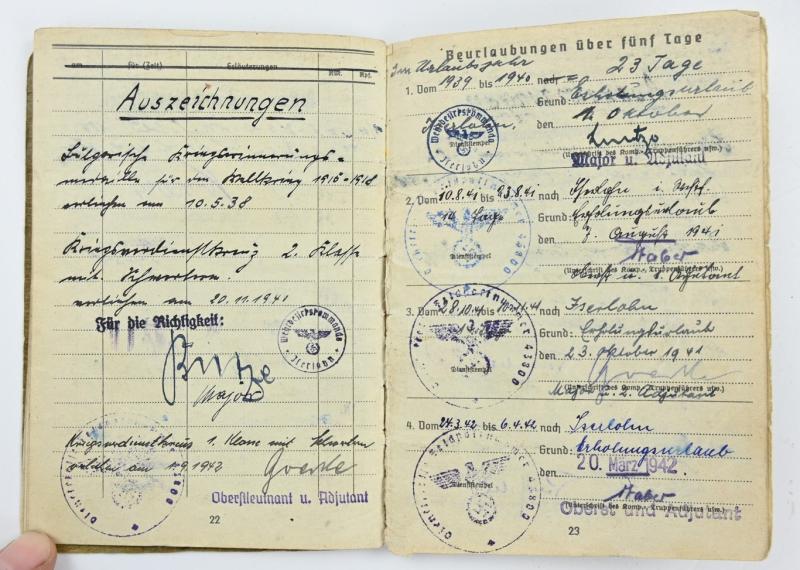 am für (Zeit) Erläuterungen RM. Rpf.
Auszeichnungen
Bulgarische Kriegserinnerungs-
medaille für den Weltkrieg 1915-1918
verliehen am 10.5.38
Kriegsverdienstkreuz 2. Klasse
mit Schwertern
verliehen am 20.11.1940
Für die Richtigkeit:
Wehrbezirkskommando
Iserlohn
Major
Kriegsverdienstkreuz 1. Klasse mit Schwertern
verliehen am 1.9.1942
Goerke
Dienststelle Feldpostnummer 43800
Oberstleutnant u. Adjutant
22
Beurlaubungen über fünf Tage
Im Urlaubsjahr
1. Vom 1939 bis 1940 nach 23 Tage
Grund: Erholungsurlaub
Iserlohn, den 1. Oktober
Wehrbezirkskommando
Dienststempel
Iserlohn
(Unterschrift des Komp.-, Truppenführers usw.)
Major u. Adjutant
2. Vom 10.8.41 bis 23.8.41 nach Iserlohn i. Westf.
14 Tage Grund: Erholungsurlaub
den 7. August 1941
Dienststempel
43800
(Unterschrift des Komp.-, Truppenführers usw.)
Oberst u. Adjutant
3. Vom 28.10.41 bis 10.11.41 nach Iserlohn
Grund: Erholungsurlaub
den 23. Oktober 1941
Feldpostnummer 43800
Dienststempel
Goerke
(Unterschrift des Komp.-, Truppenführers usw.)
Major u. 2. Adjutant
4. Vom 24.3.42 bis 6.4.42 nach Iserlohn
Grund: Erholungsurlaub
den 20. März 1942
Dienststelle Feldpostnummer 43800
Dienststempel
(Unterschrift des Komp.-, Truppenführers usw.)
Oberst und Adjutant
23